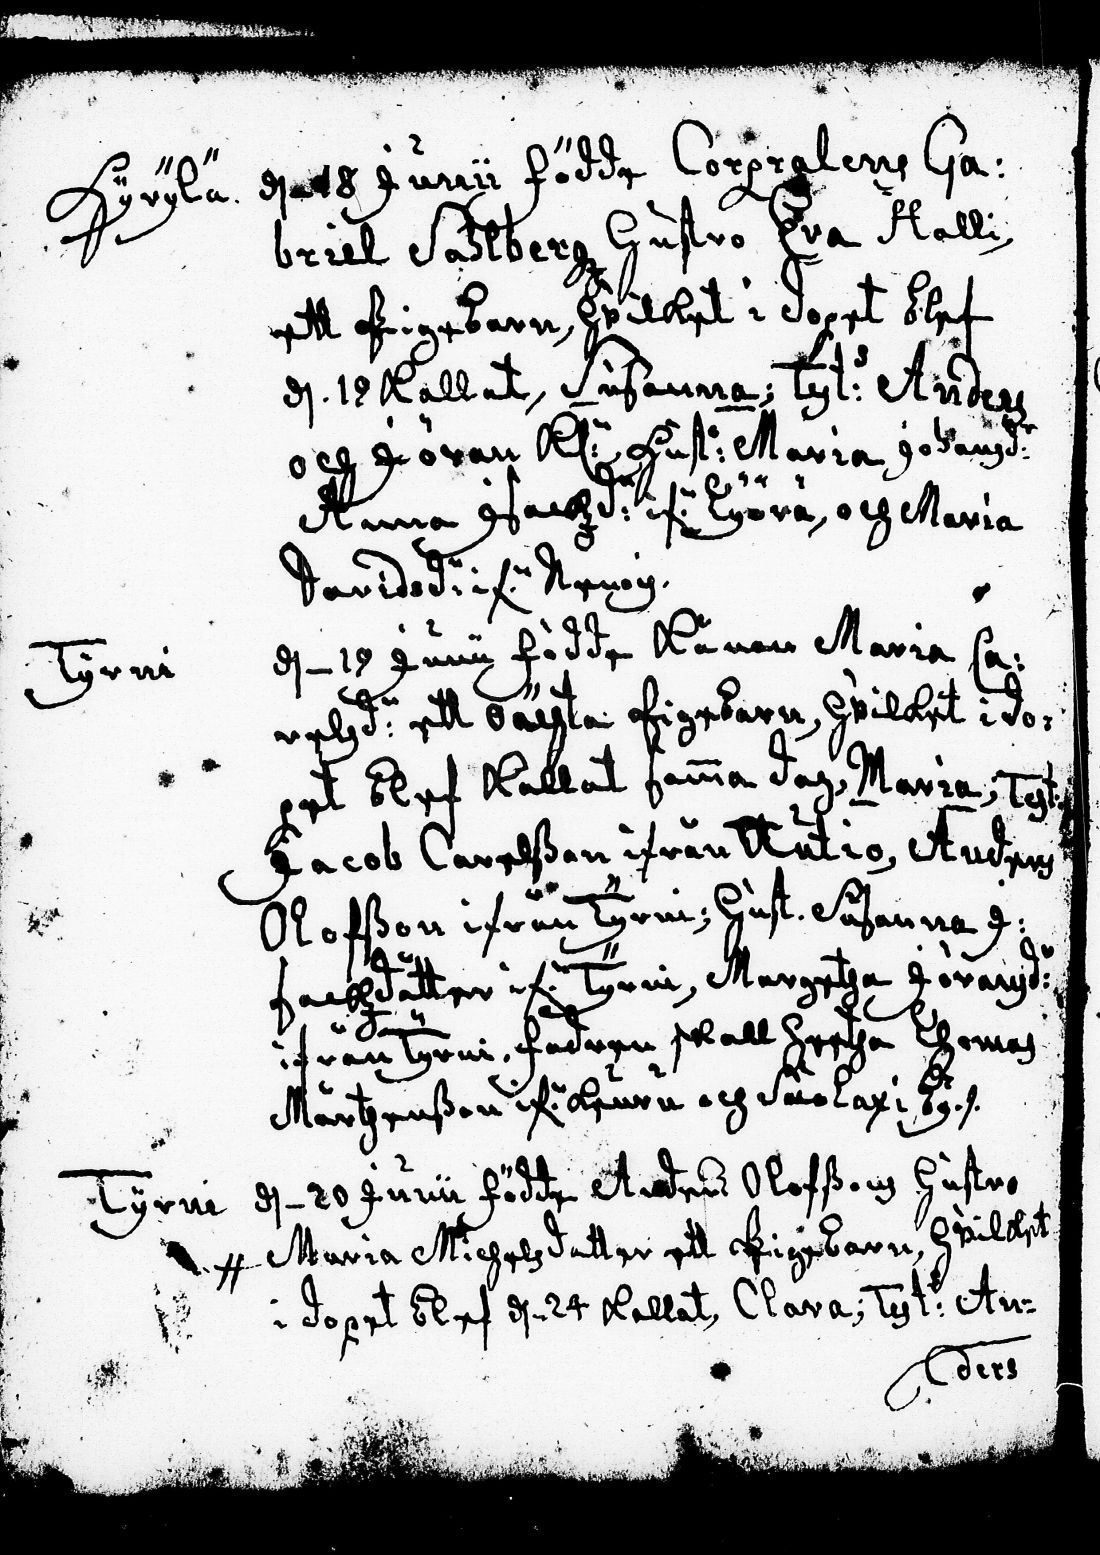 Hÿrÿlä. d. 18 Junii födde Corpralens Ga:
briel Sahlberg Hustro Eva Halli,
ett Pigebarn, hvilket i dopet blef
d. 19 Kallat, Susanna; Tyt:s Anders
och Jöran Hust: Maria Johansd:r
Anna Isachzd:r if:n Työrä, och Maria
Davidsd:r if:n
Tÿrni d. 19 Junii födde Kånan Maria Ca:
relsd:r ett oächta Pigebarn, hvilket i do:
pet blef Kallat samma dag, Maria; Tyt:
Jacob Carelßon ifrån Autio, Anders
Olofßon ifrån Tÿrni; Hust. Susanna I:
sachzdåtter if:n Tÿrni, Margetha Jöransd:r
ifrån Tÿrni. fadren skall heetha Thomas
Mårthenßon if:n Keuru och Suolaxi by.
Tÿrni d. 20 Junii födde Anders Olofßons Hustro
# Maria Michelsdatter ett Pigebarn, hvilket
i dopet blef d. 24 Kallat, Clara; Tyt:s An=
ders